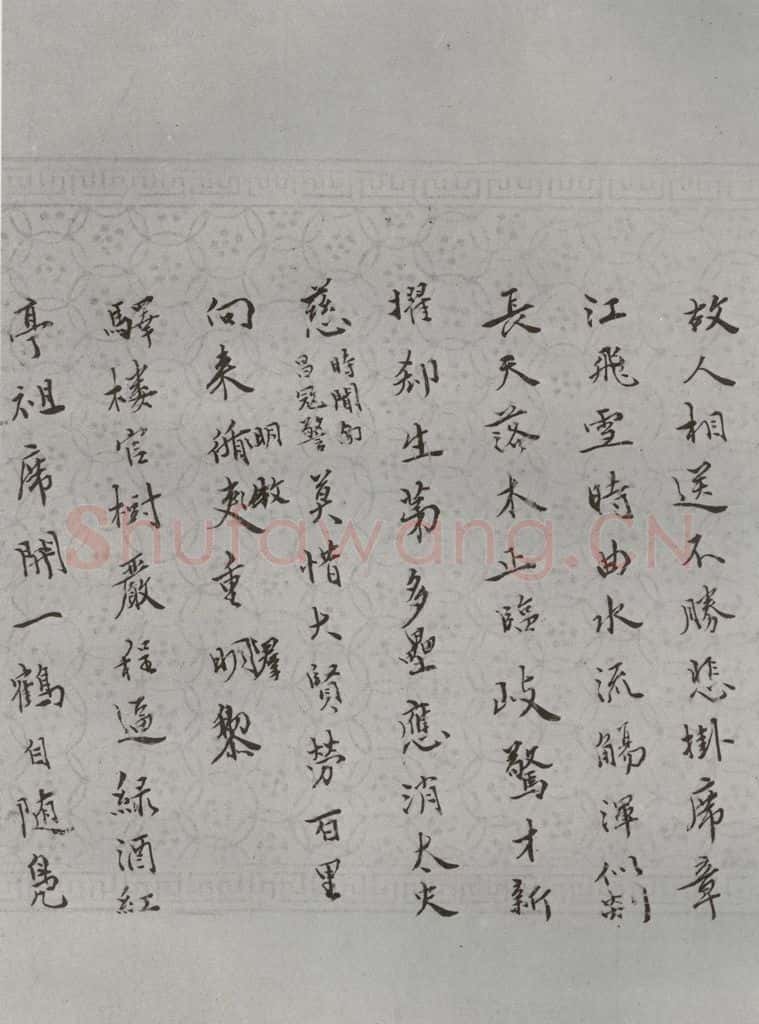 故人相送不勝悲掛席章
江飛雪時曲水流觴渾似剡
長天落木正臨岐驚才新
擢郄生第多壘應消太史
慈
時聞
昌寇警
莫惜大賢勞百里
向来循吏重明黎
羣
驛樓官樹嚴程逼緑酒紅
亭祖席開一鶴自随凫
Shufawang.CN